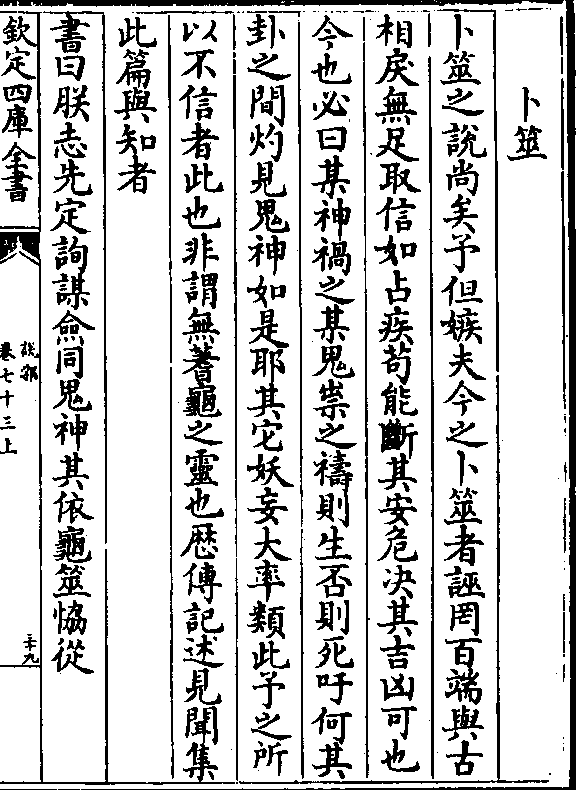 卜筮
卜筮之說尚矣予但嫉夫今之卜筮者誣罔百端與古
相戾無足取信如占疾苟能斷其安危决其吉凶可也
今也必曰某神禍之某鬼祟之禱則生否則死吁何其
卦之間灼見鬼神如是耶其它妖妄大率類此予之所
以不信者此也非謂無蓍龜之靈也歴傳記述見聞集
此篇與知者
書曰朕志先定詢謀僉同鬼神其依龜筮恊從
欽定四庫全書
說郛
卷七十三上
二十九